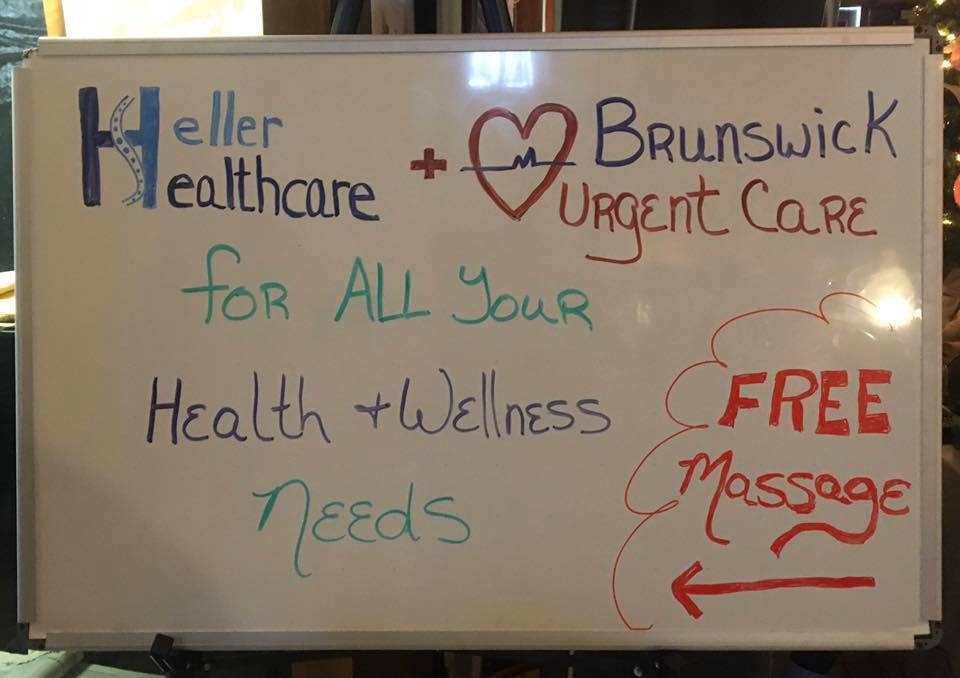 Heller Healthcare + Brunswick Urgent Care
for All Your
Health + Wellness
Needs
FREE
Massage